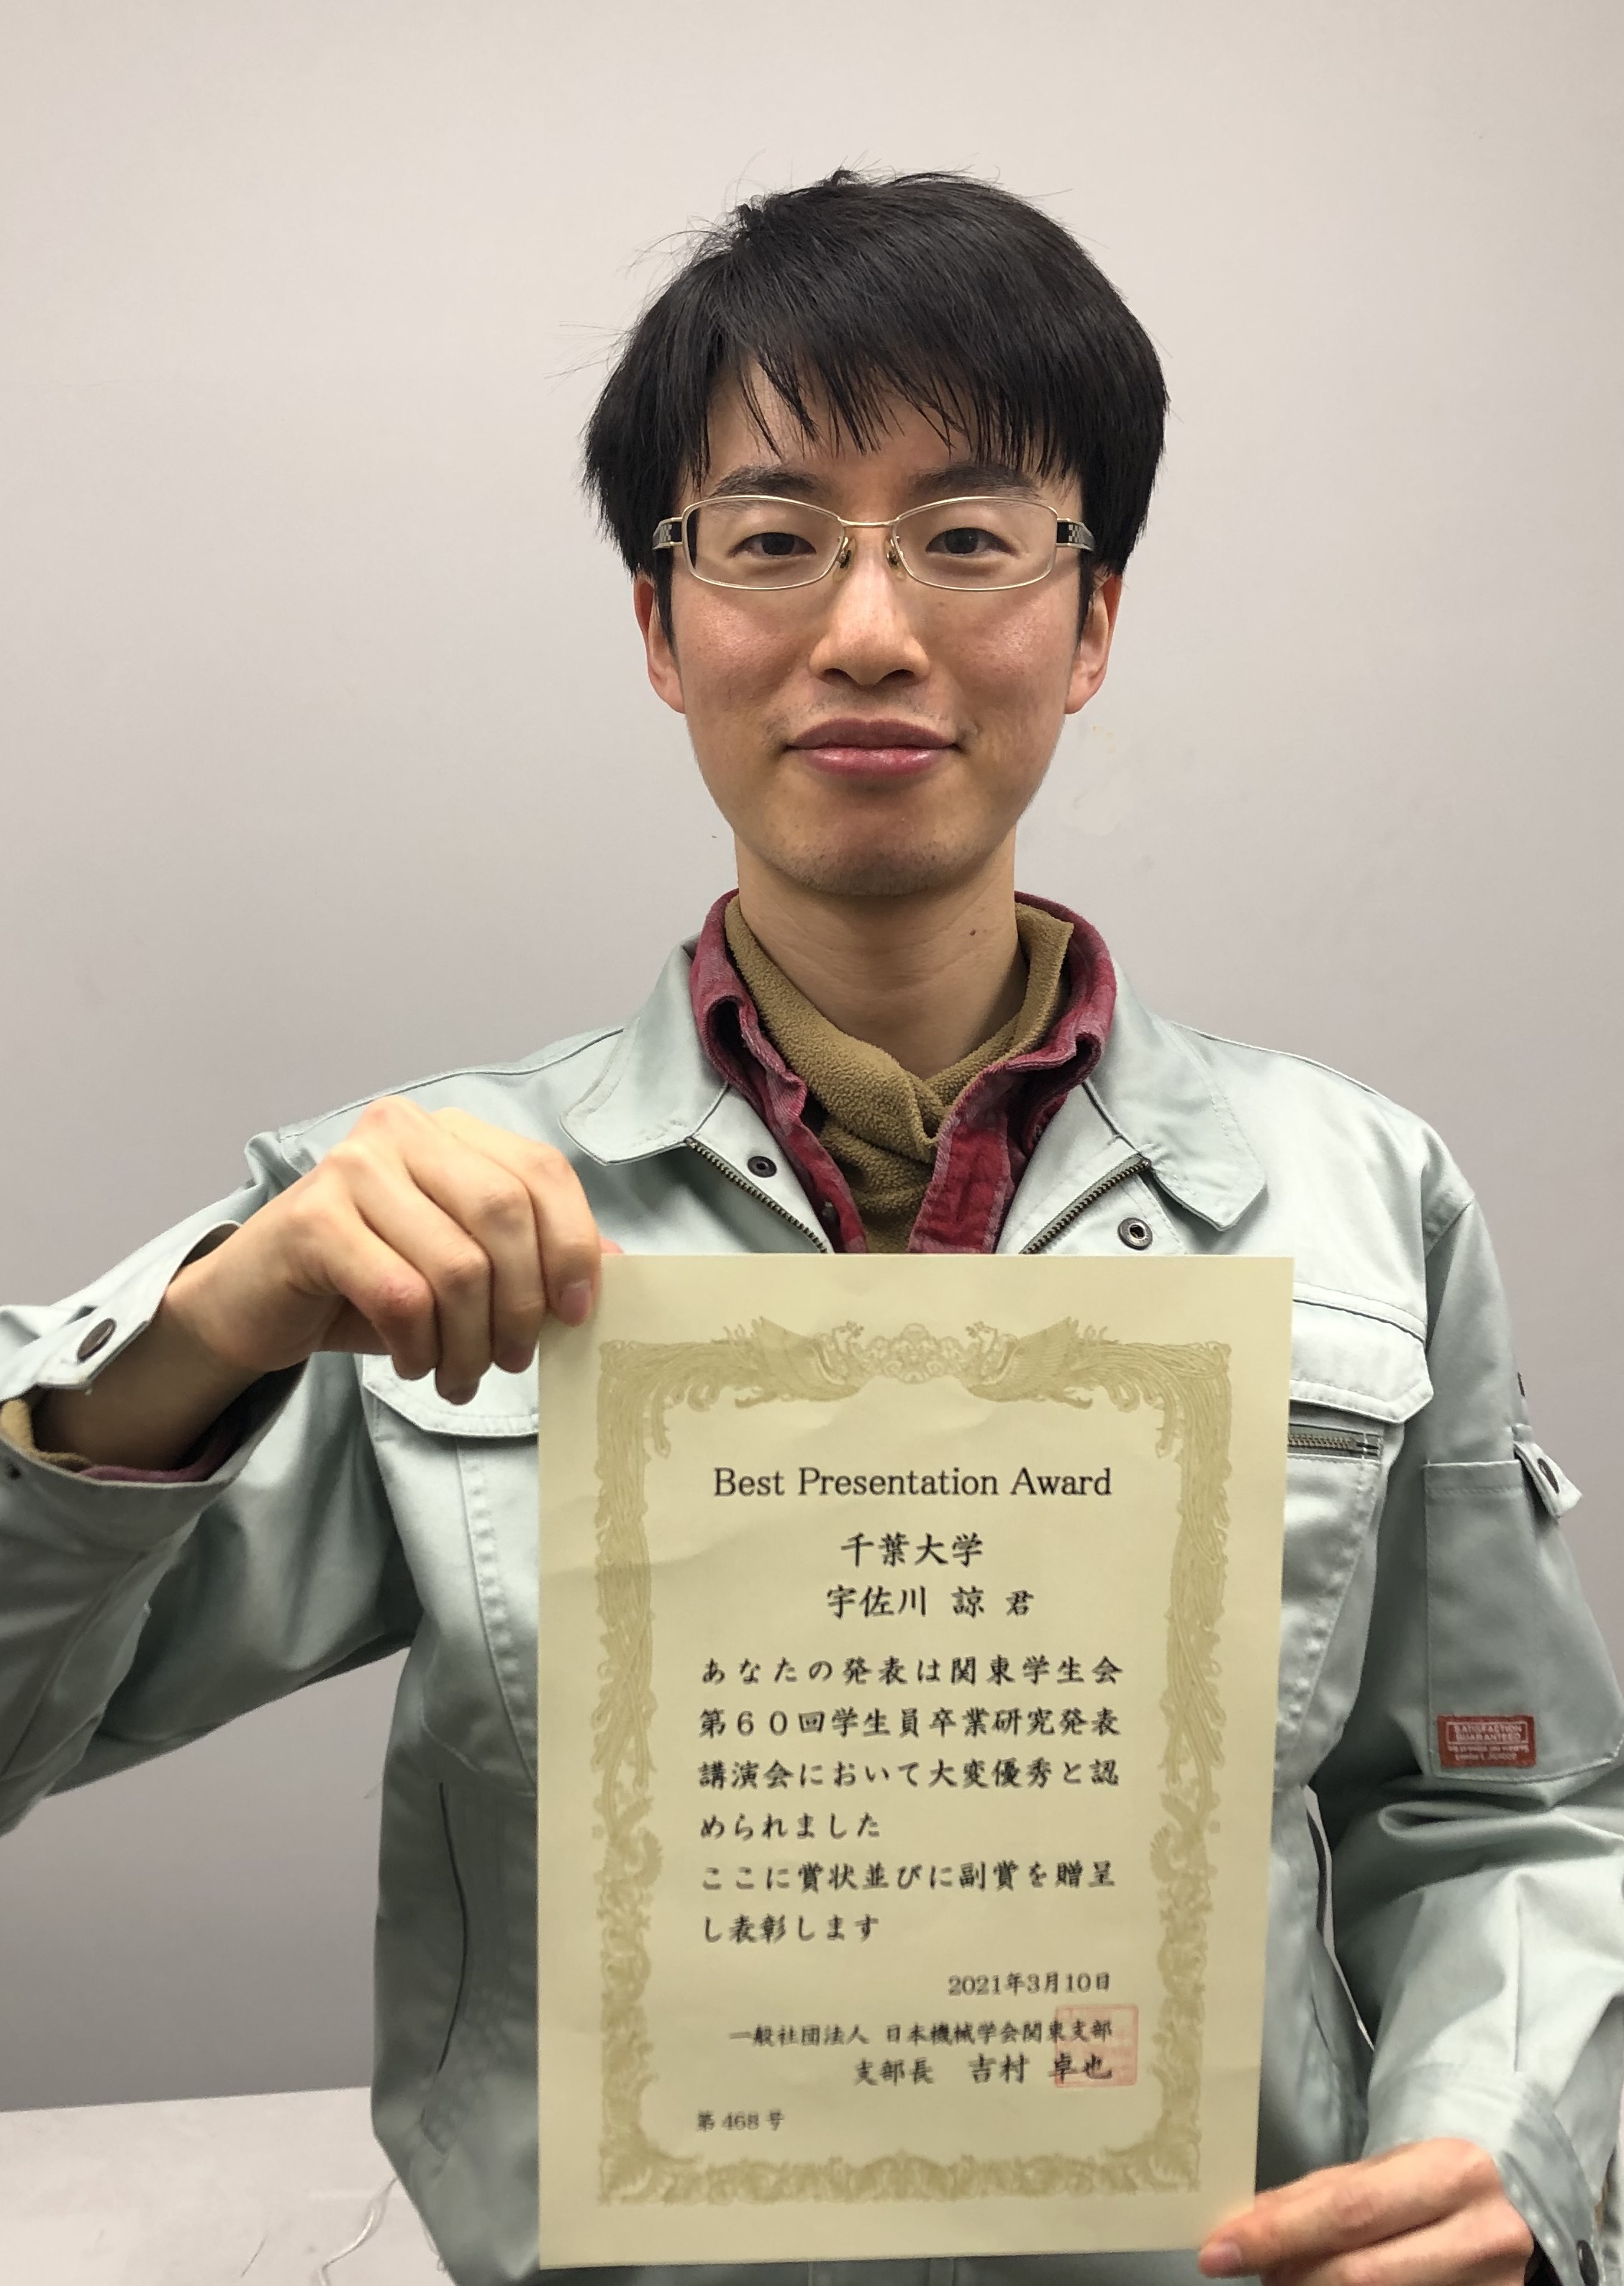 Best Presentation Award
千葉大学
宇佐川 諒 君
あなたの発表は関東学生会
第60回学生員卒業研究発表
講演会において大変優秀と認
められました
ここに賞状並びに副賞を贈呈
し表彰します
2021年3月10日
一般社団法人 日本機械学会関東支部
支部長 吉村 卓也
第 468 号
SATISFACTION
GUARANTEED